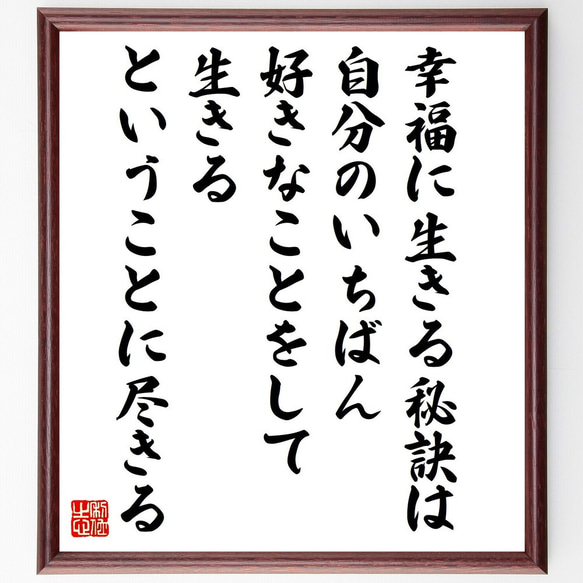 幸福に生きる秘訣は
自分のいちばん
好きなことをして
生きる
ということに尽きる